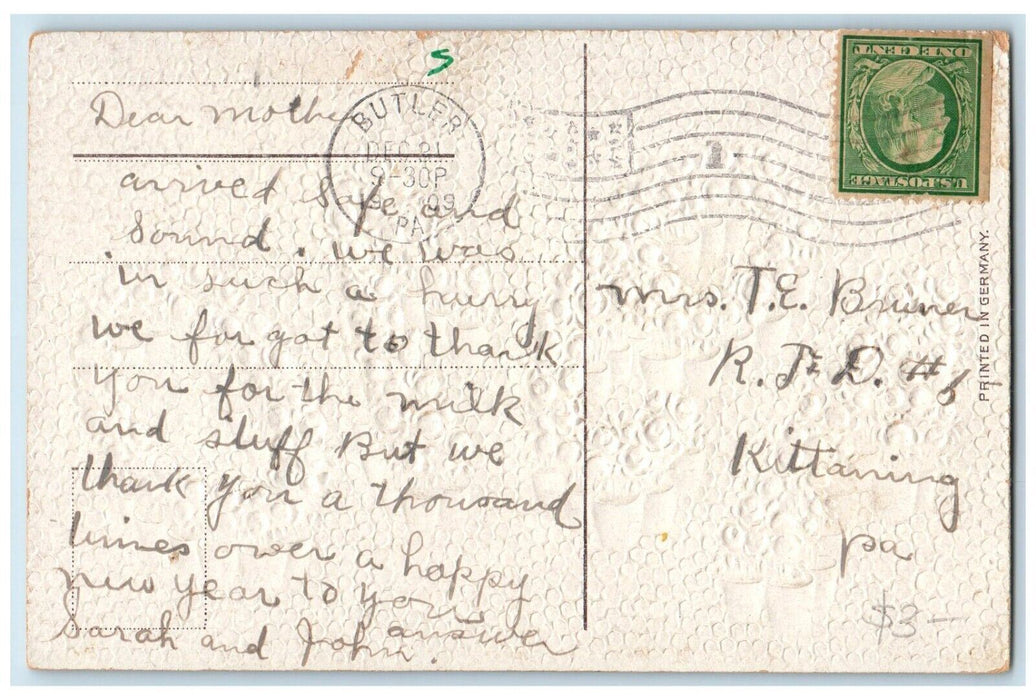 S
Dear Mother
arrived safe and
Sound. we was
in such a hurry
we for got to thank
you for the milk
and stuff But we
thank you a thousand
times over a happy
new year to you
answer
Sarah and John.
BUTLER
DEC 21
9-30P
1909
PA
ONE CENT
U.S. POSTAGE
Mrs. T.E. Bruner
R.F.D. #
Kittaning
pa
PRINTED IN GERMANY.
$3-